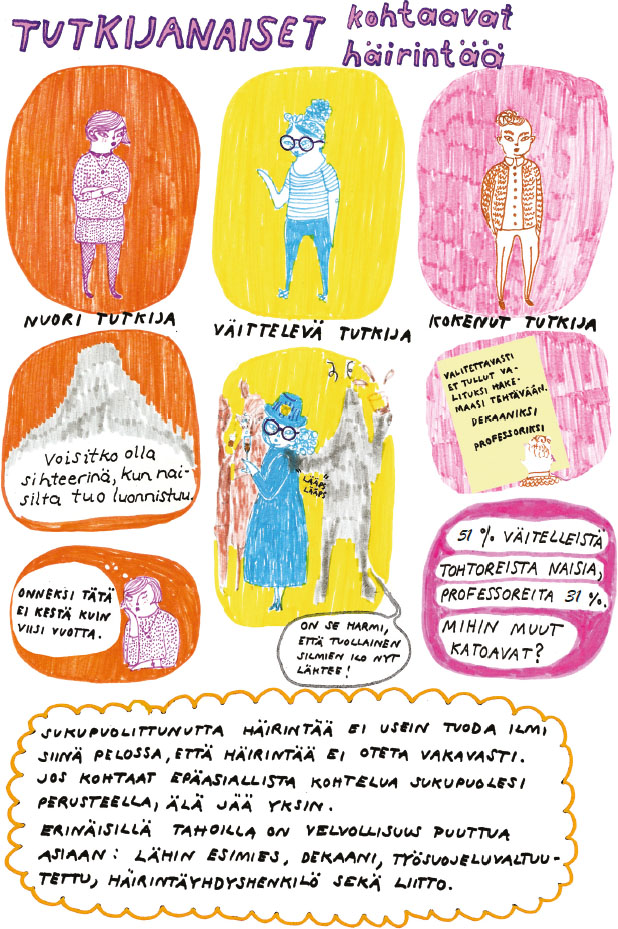 TUTKIJANAISET kohtaavat
häirintää
NUORI TUTKIJA
Voisitko olla
sihteerinä, kun nai-
silta tuo luonnistuu.
ONNEKSI TÄTÄ
EI KESTÄ KUIN
VIISI VUOTTA.
VÄITTELEVÄ TUTKIJA
"LÄÄPS
LÄÄPS"
ON SE HARMI,
ETTÄ TUOLLAINEN
SILMIEN ILO NYT
LÄHTEE!
KOKENUT TUTKIJA
VALITETTAVASTI
ET TULLUT VA-
LITUKSI HAKE-
MAASI TEHTÄVÄÄN.
DEKAANIKSI
PROFESSORIKSI
51 % VÄITELLEISTÄ
TOHTOREISTA NAISIA,
PROFESSOREITA 31 %.
MIHIN MUUT
KATOAVAT?
SUKUPUOLITTUNUTTA HÄIRINTÄÄ EI USEIN TUODA ILMI
SIINÄ PELOSSA, ETTÄ HÄIRINTÄÄ EI OTETA VAKAVASTI.
JOS KOHTAAT EPÄASIALLISTA KOHTELUA SUKUPUOLESI
PERUSTEELLA, ÄLÄ JÄÄ YKSIN.
ERINÄISILLÄ TAHOILLA ON VELVOLLISUUS PUUTTUA
ASIAAN: LÄHIN ESIMIES, DEKAANI, TYÖSUOJELUVALTUU-
TETTU, HÄIRINTÄYHDYSHENKILÖ SEKÄ LIITTO.